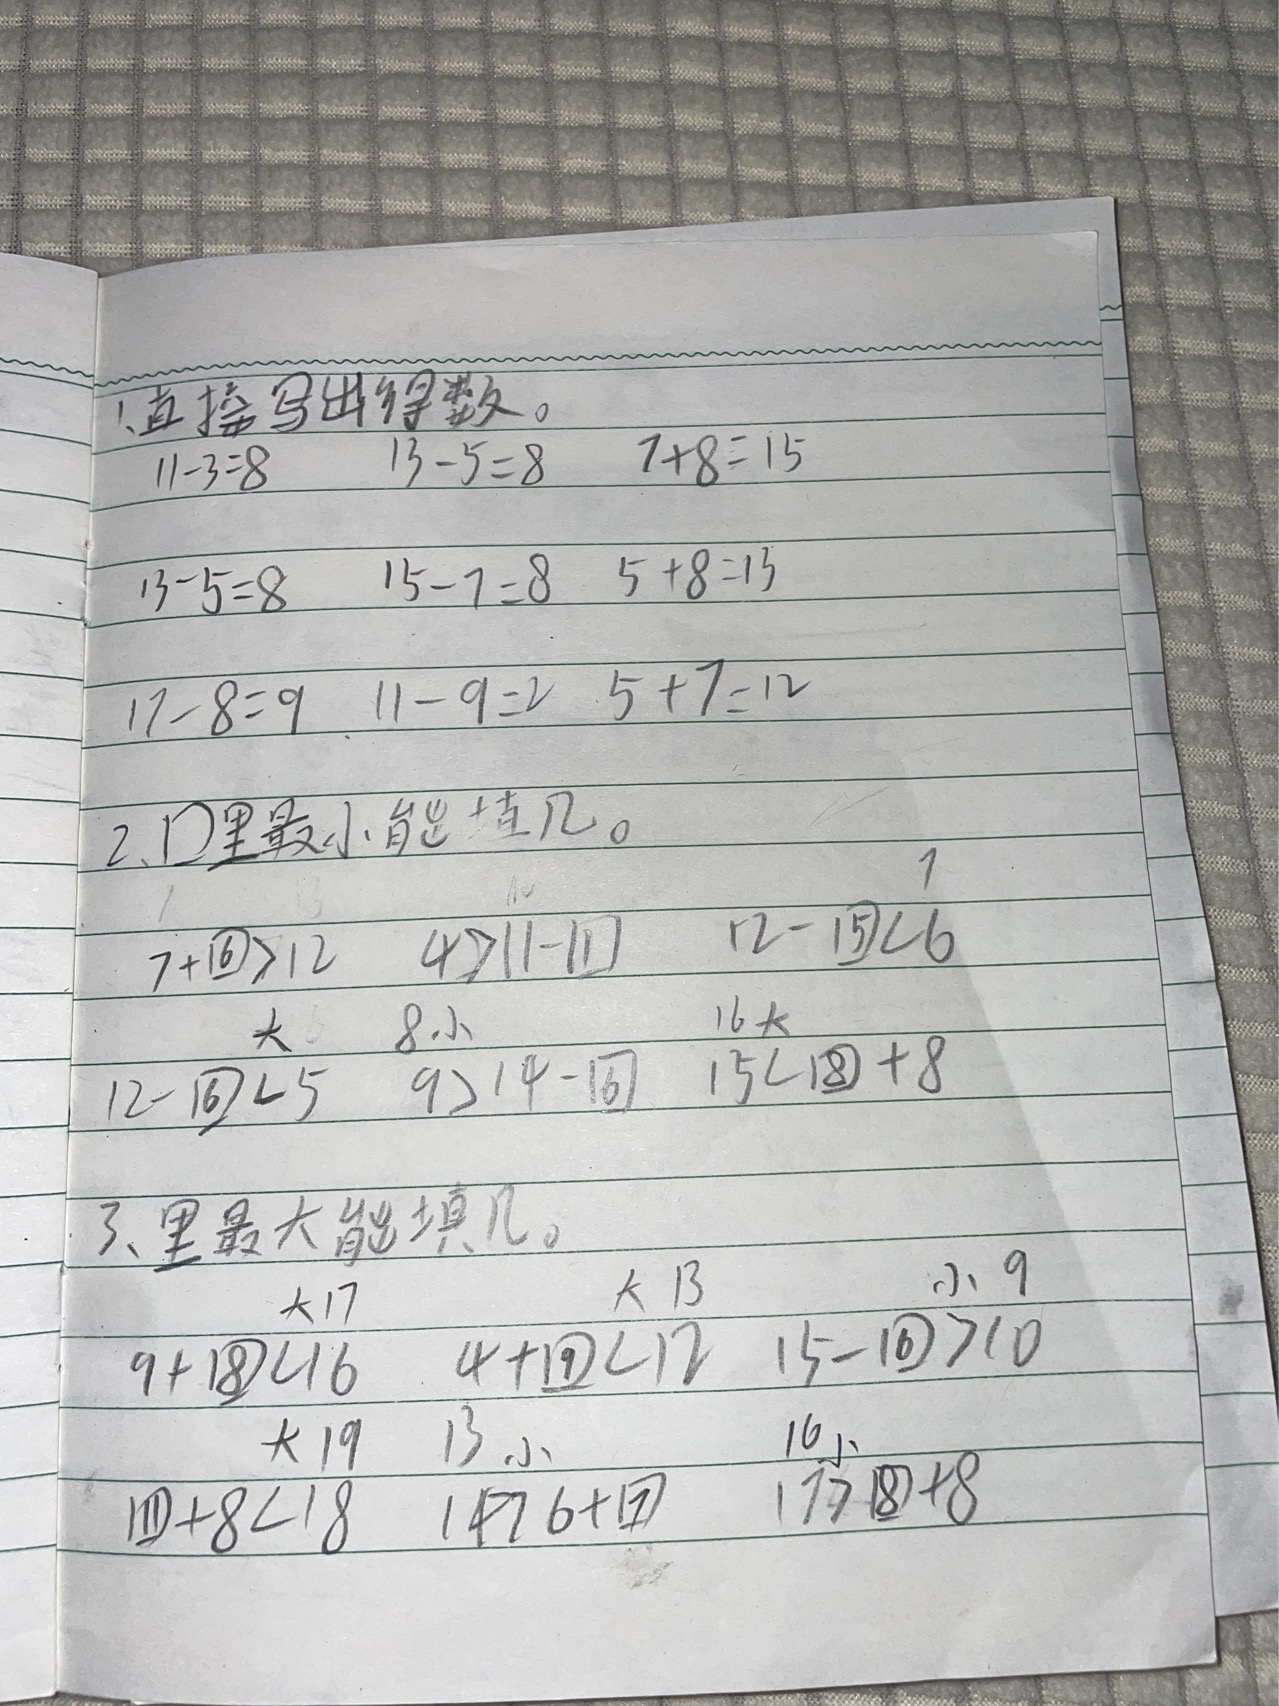 1.直接写出得数。
11-3=8 13-5=8 7+8=15
13-5=8 15-7=8 5+8=13
17-8=9 11-9=2 5+7=12
2、口里最小能填几。
7
7+6>12 4>11- 12-15<6
大 8小 16大
12-6<5 9>14-6 15<18+8
3、里最大能填几。
大17 大13 小9
9+18<16 4+19<12 15-16>10
大19 13小 16小
11+8<18 14>6+17 17>18+8